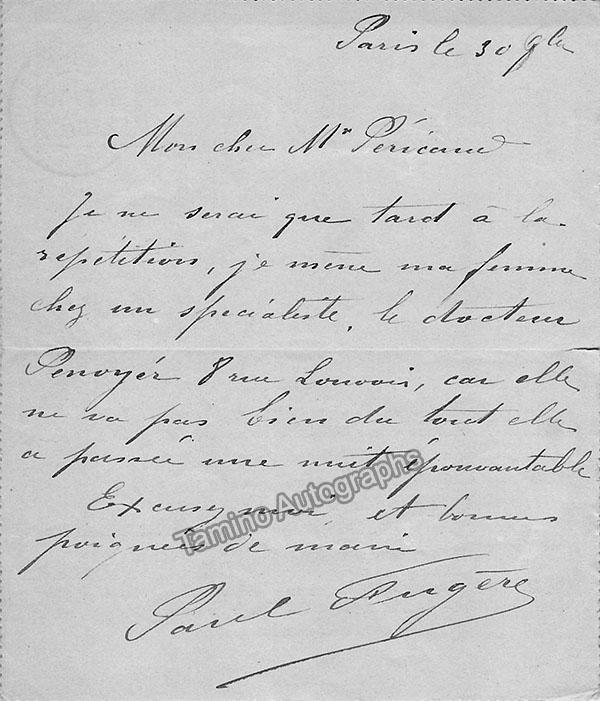 Paris le 30 9bre
Mon cher Mr Péricaud
Je ne serai que tard à la
répétition, je mène ma femme
chez un spécialiste, le docteur
Penoyér 8 rue Louvois, car elle
ne va pas bien du tout elle
a passée une nuit épouvantable
Excusez moi, et bonnes
poignées de main
Paul Fugère
Tamino Autographs